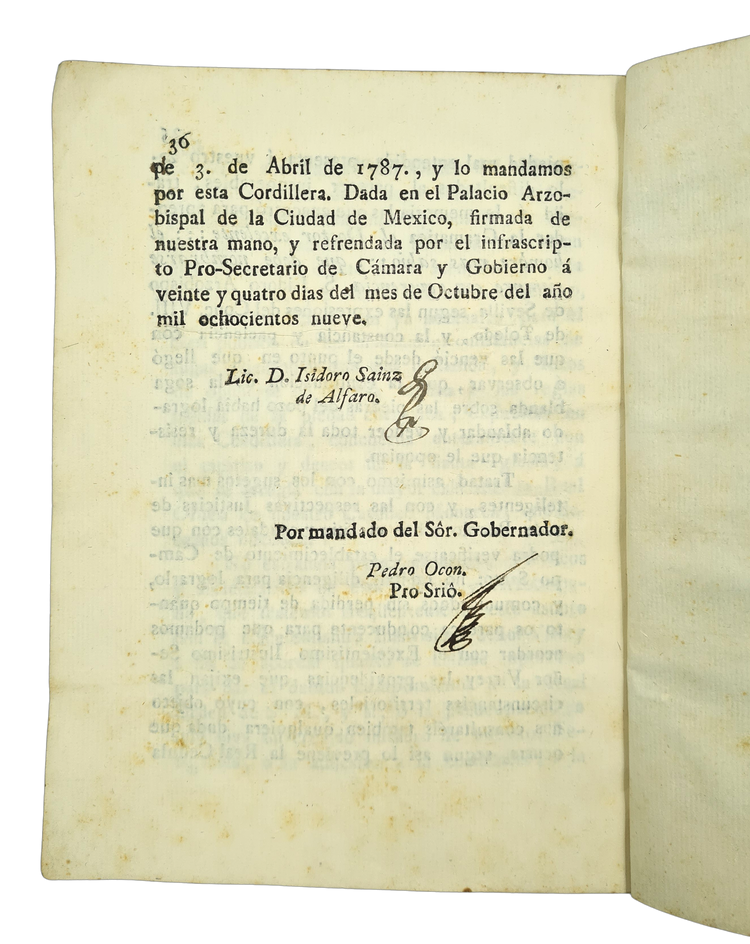 36
de 3. de Abril de 1787., y lo mandamos
por esta Cordillera. Dada en el Palacio Arzo-
bispal de la Ciudad de Mexico, firmada de
nuestra mano, y refrendada por el infrascrip-
to Pro-Secretario de Cámara y Gobierno á
veinte y quatro dias del mes de Octubre del año
mil ochocientos nueve.
Lic. D. Isidoro Sainz
de Alfaro.
Por mandado del Sôr. Gobernador.
Pedro Ocon.
Pro Sriô.